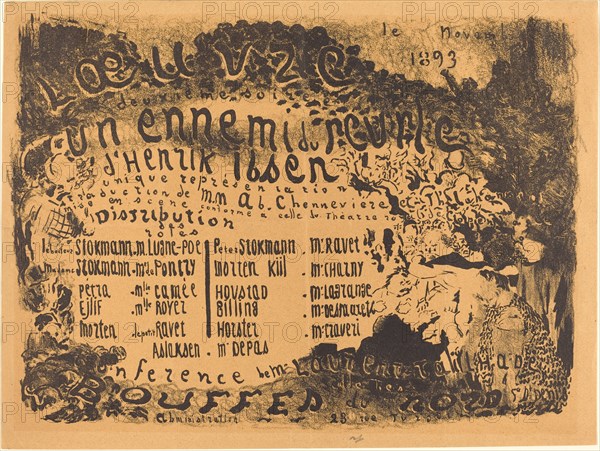 le Novem
1893
L'OEUVRE
deuxième soirée
un ennemi du peuple
d'Henrik Ibsen
unique représentation
traduction de mm Ab. Chennevière et
en scène conforme à celle du Théâtre
Distribution
rôles
Stokmann. m. Lugné-Poe
Madame Stokmann. m du Pontry
Petra . mlle Camée
Ejlif . mlle Royer
Morten . le petit Ravet
Aslaksen . mr Depas
Peter Stokmann . mr Ravet
Morten Kiil . mr Charny
Hovstad . mr Lagrange
Billing . mr Desmarets
Horster . mr Traveri
onference de mr Laurent Tailhade
BOUFFES du NORD
administration 23 rue